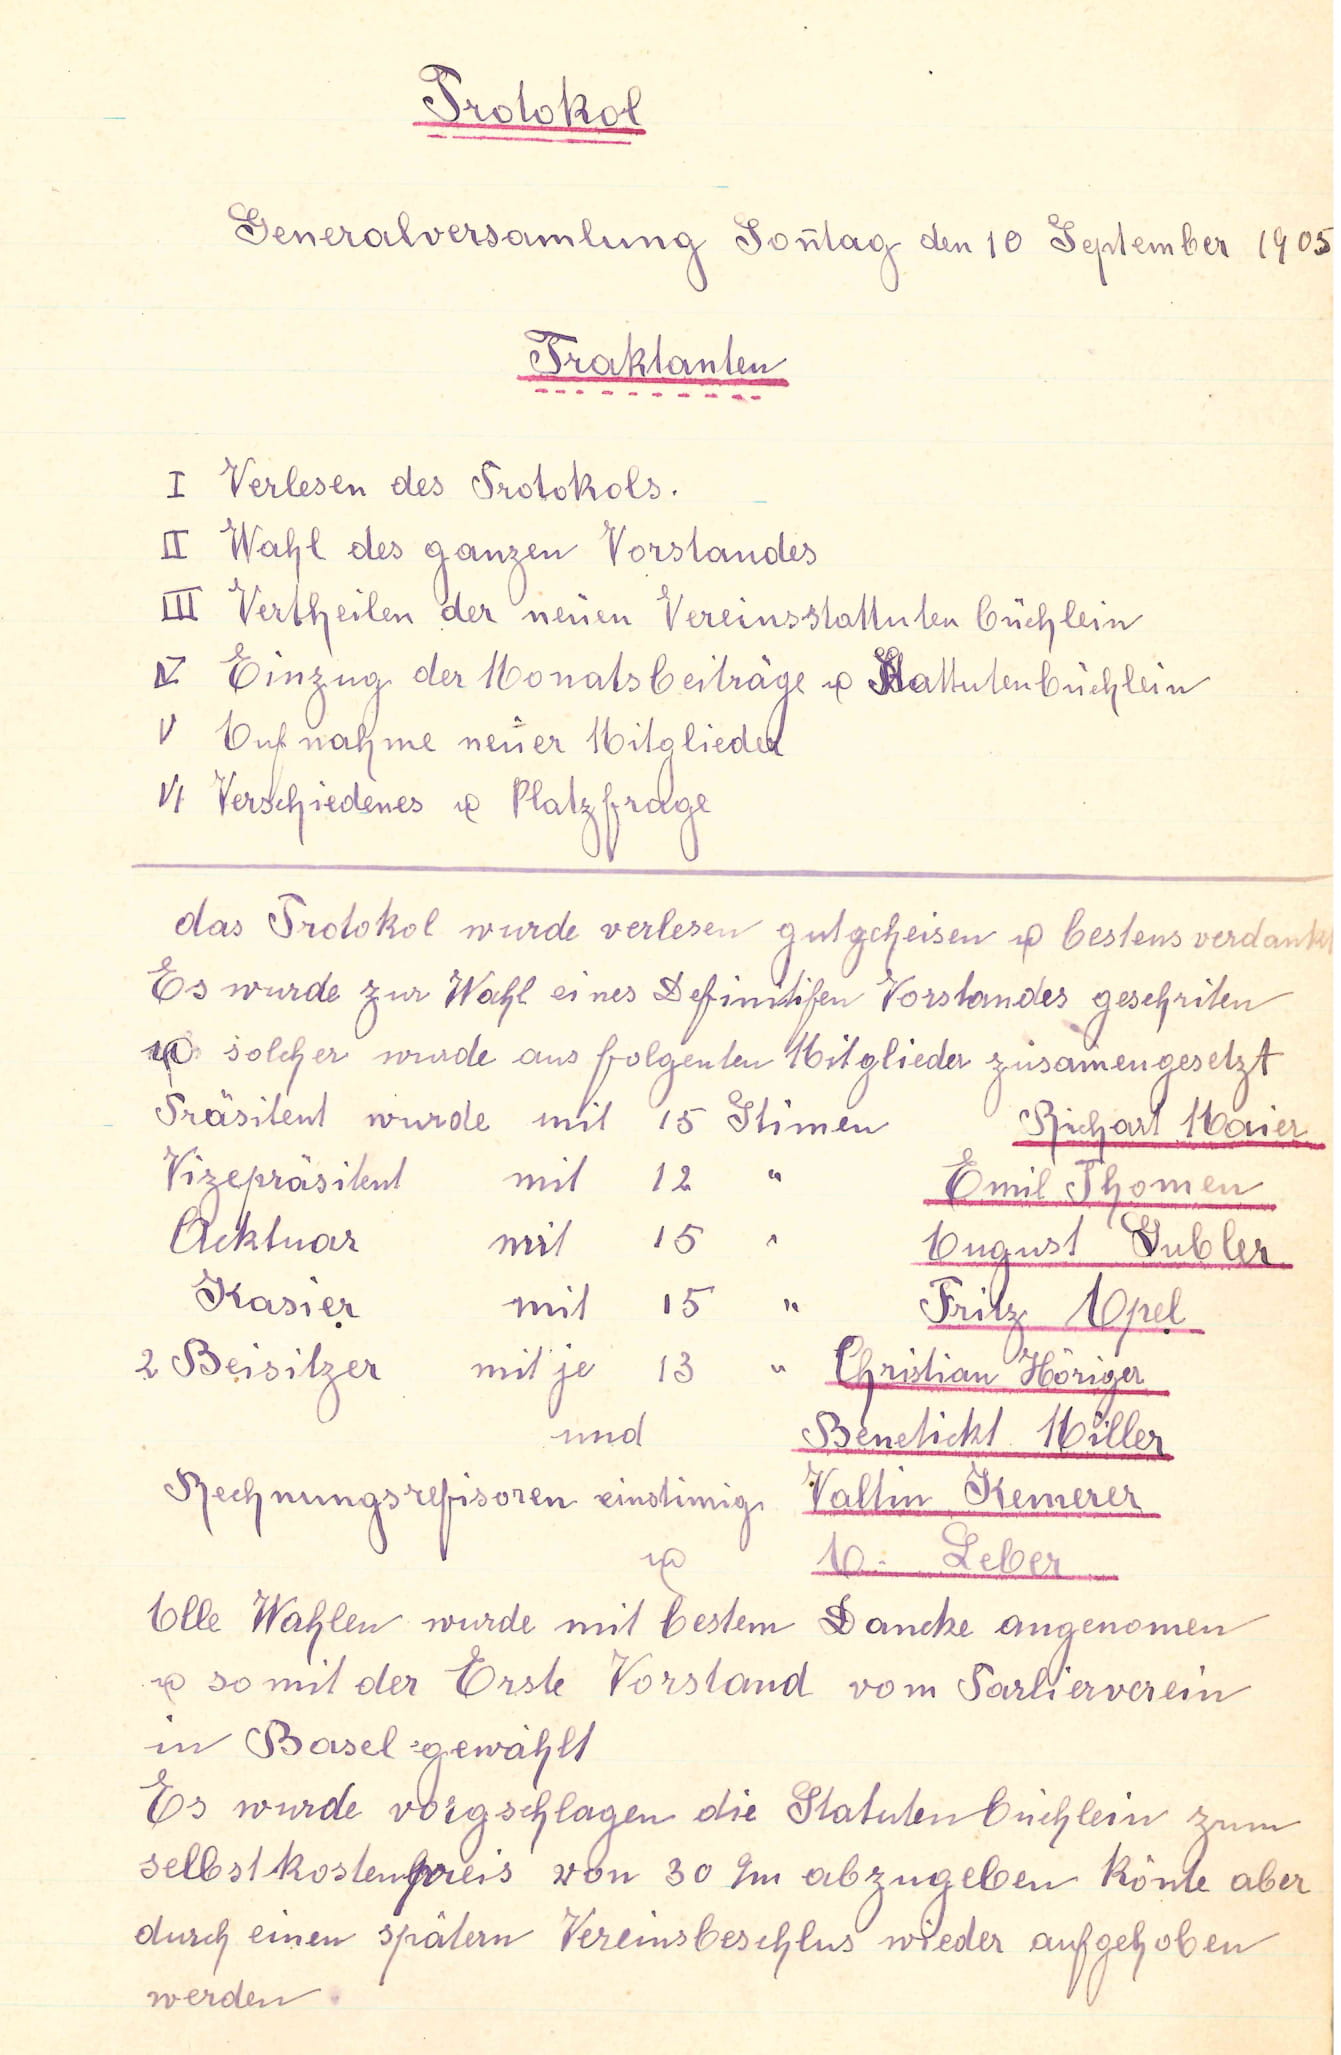 Protokol
Generalversamlung Soñtag den 10 September 1905
Traktanten
I Verlesen des Protokols.
II Wahl des ganzen Vorstandes
III Vertheilen der neuen Vereinsstattuten büchlein
IV Einzug der Monatsbeiträge u Stattutenbüchlein
V Aufnahme neuer Mitglieder
VI Verschiedenes u Platzfrage
das Protokol wurde verlesen gutgeheisen u bestens verdankt
Es wurde zur Wahl eines Definitifen Vorstandes geschriten
u solcher wurde aus folgenten Mitglieder zusam̄engesetzt
Präsitent wurde mit 15 Stimen Richart Maier
Vizepräsitent mit 12 " Emil Thomen
Acktuar mit 15 " August Gubler
Kasier mit 15 " Fritz Apel
2 Beisitzer mit je 13 " Christian Höriger
und Benetickt Miller
Rechnungsrefisoren einstimig Valtin Kemerer
u A. Leber
Alle Wahlen wurde mit bestem Dancke angenomen
u somit der Erste Vorstand vom Parlierverein
in Basel gewählt
Es wurde vorgschlagen die Statuten büchlein zum
selbstkostenpreis von 30 abzugeben könte aber
durch einen spätern Vereinsbeschlus wieder aufgehoben
werden